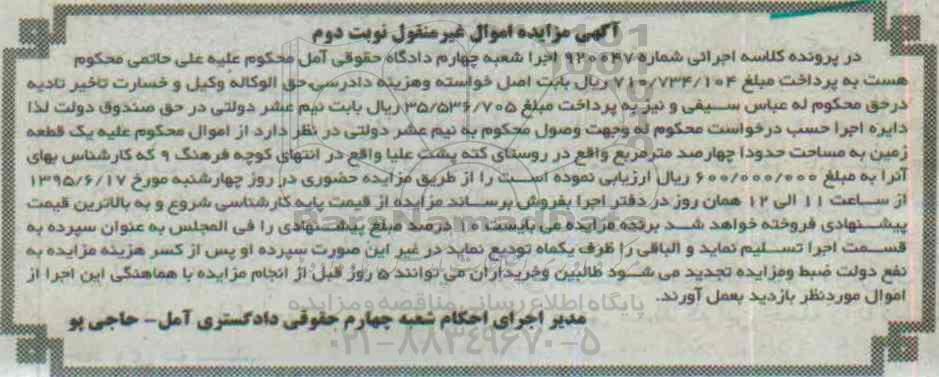 آگهی مزایده اموال غیرمنقول نوبت دوم
در پرونده کلاسه اجرائی شماره ۹۲۰۶۴۷ اجرا شعبه چهارم دادگاه حقوقی آمل محکوم علیه علی حاتمی محکوم
هست به پرداخت مبلغ ۷۱۰/۷۳۴/۱۰۴ ریال بابت اصل خواسته وهزینه دادرسی،حق الوکاله وکیل و خسارت تاخیر تادیه
درحق محکوم له عباس سیفی و نیز به پرداخت مبلغ ۳۵/۵۳۶/۷۰۵ ریال بابت نیم عشر دولتی در حق صندوق دولت لذا
دایره اجرا حسب درخواست محکوم له وجهت وصول محکوم به نیم عشر دولتی در نظر دارد از اموال محکوم علیه یک قطعه
زمین به مساحت حدودا چهارصد مترمربع واقع در روستای کته پشت علیا واقع در انتهای کوچه فرهنگ ۹ که کارشناس بهای
آنرا به مبلغ ۶۰۰/۰۰۰/۰۰۰ ریال ارزیابی نموده است را از طریق مزایده حضوری در روز چهارشنبه مورخ ۱۳۹۵/۶/۱۷
از ساعت ۱۱ الی ۱۲ همان روز در دفتر اجرا بفروش برساند مزایده از قیمت پایه کارشناسی شروع و به بالاترین قیمت
پیشنهادی فروخته خواهد شد برنده مزایده می بایست ۱۰ درصد مبلغ پیشنهادی را فی المجلس به عنوان سپرده به
قسمت اجرا تسلیم نماید و الباقی را ظرف یکماه تودیع نماید در غیر این صورت سپرده او پس از کسر هزینه مزایده به
نفع دولت ضبط ومزایده تجدید می شود طالبین وخریداران می توانند ۵ روز قبل از انجام مزایده با هماهنگی این اجرا از
اموال موردنظر بازدید بعمل آورند.
پایگاه اطلاع رسانی مناقصه و مزایده
مدیر اجرای احکام شعبه چهارم حقوقی دادگستری آمل- حاجی پو
۰۲۱-۸۸۳۴۹۶۷۰-۵